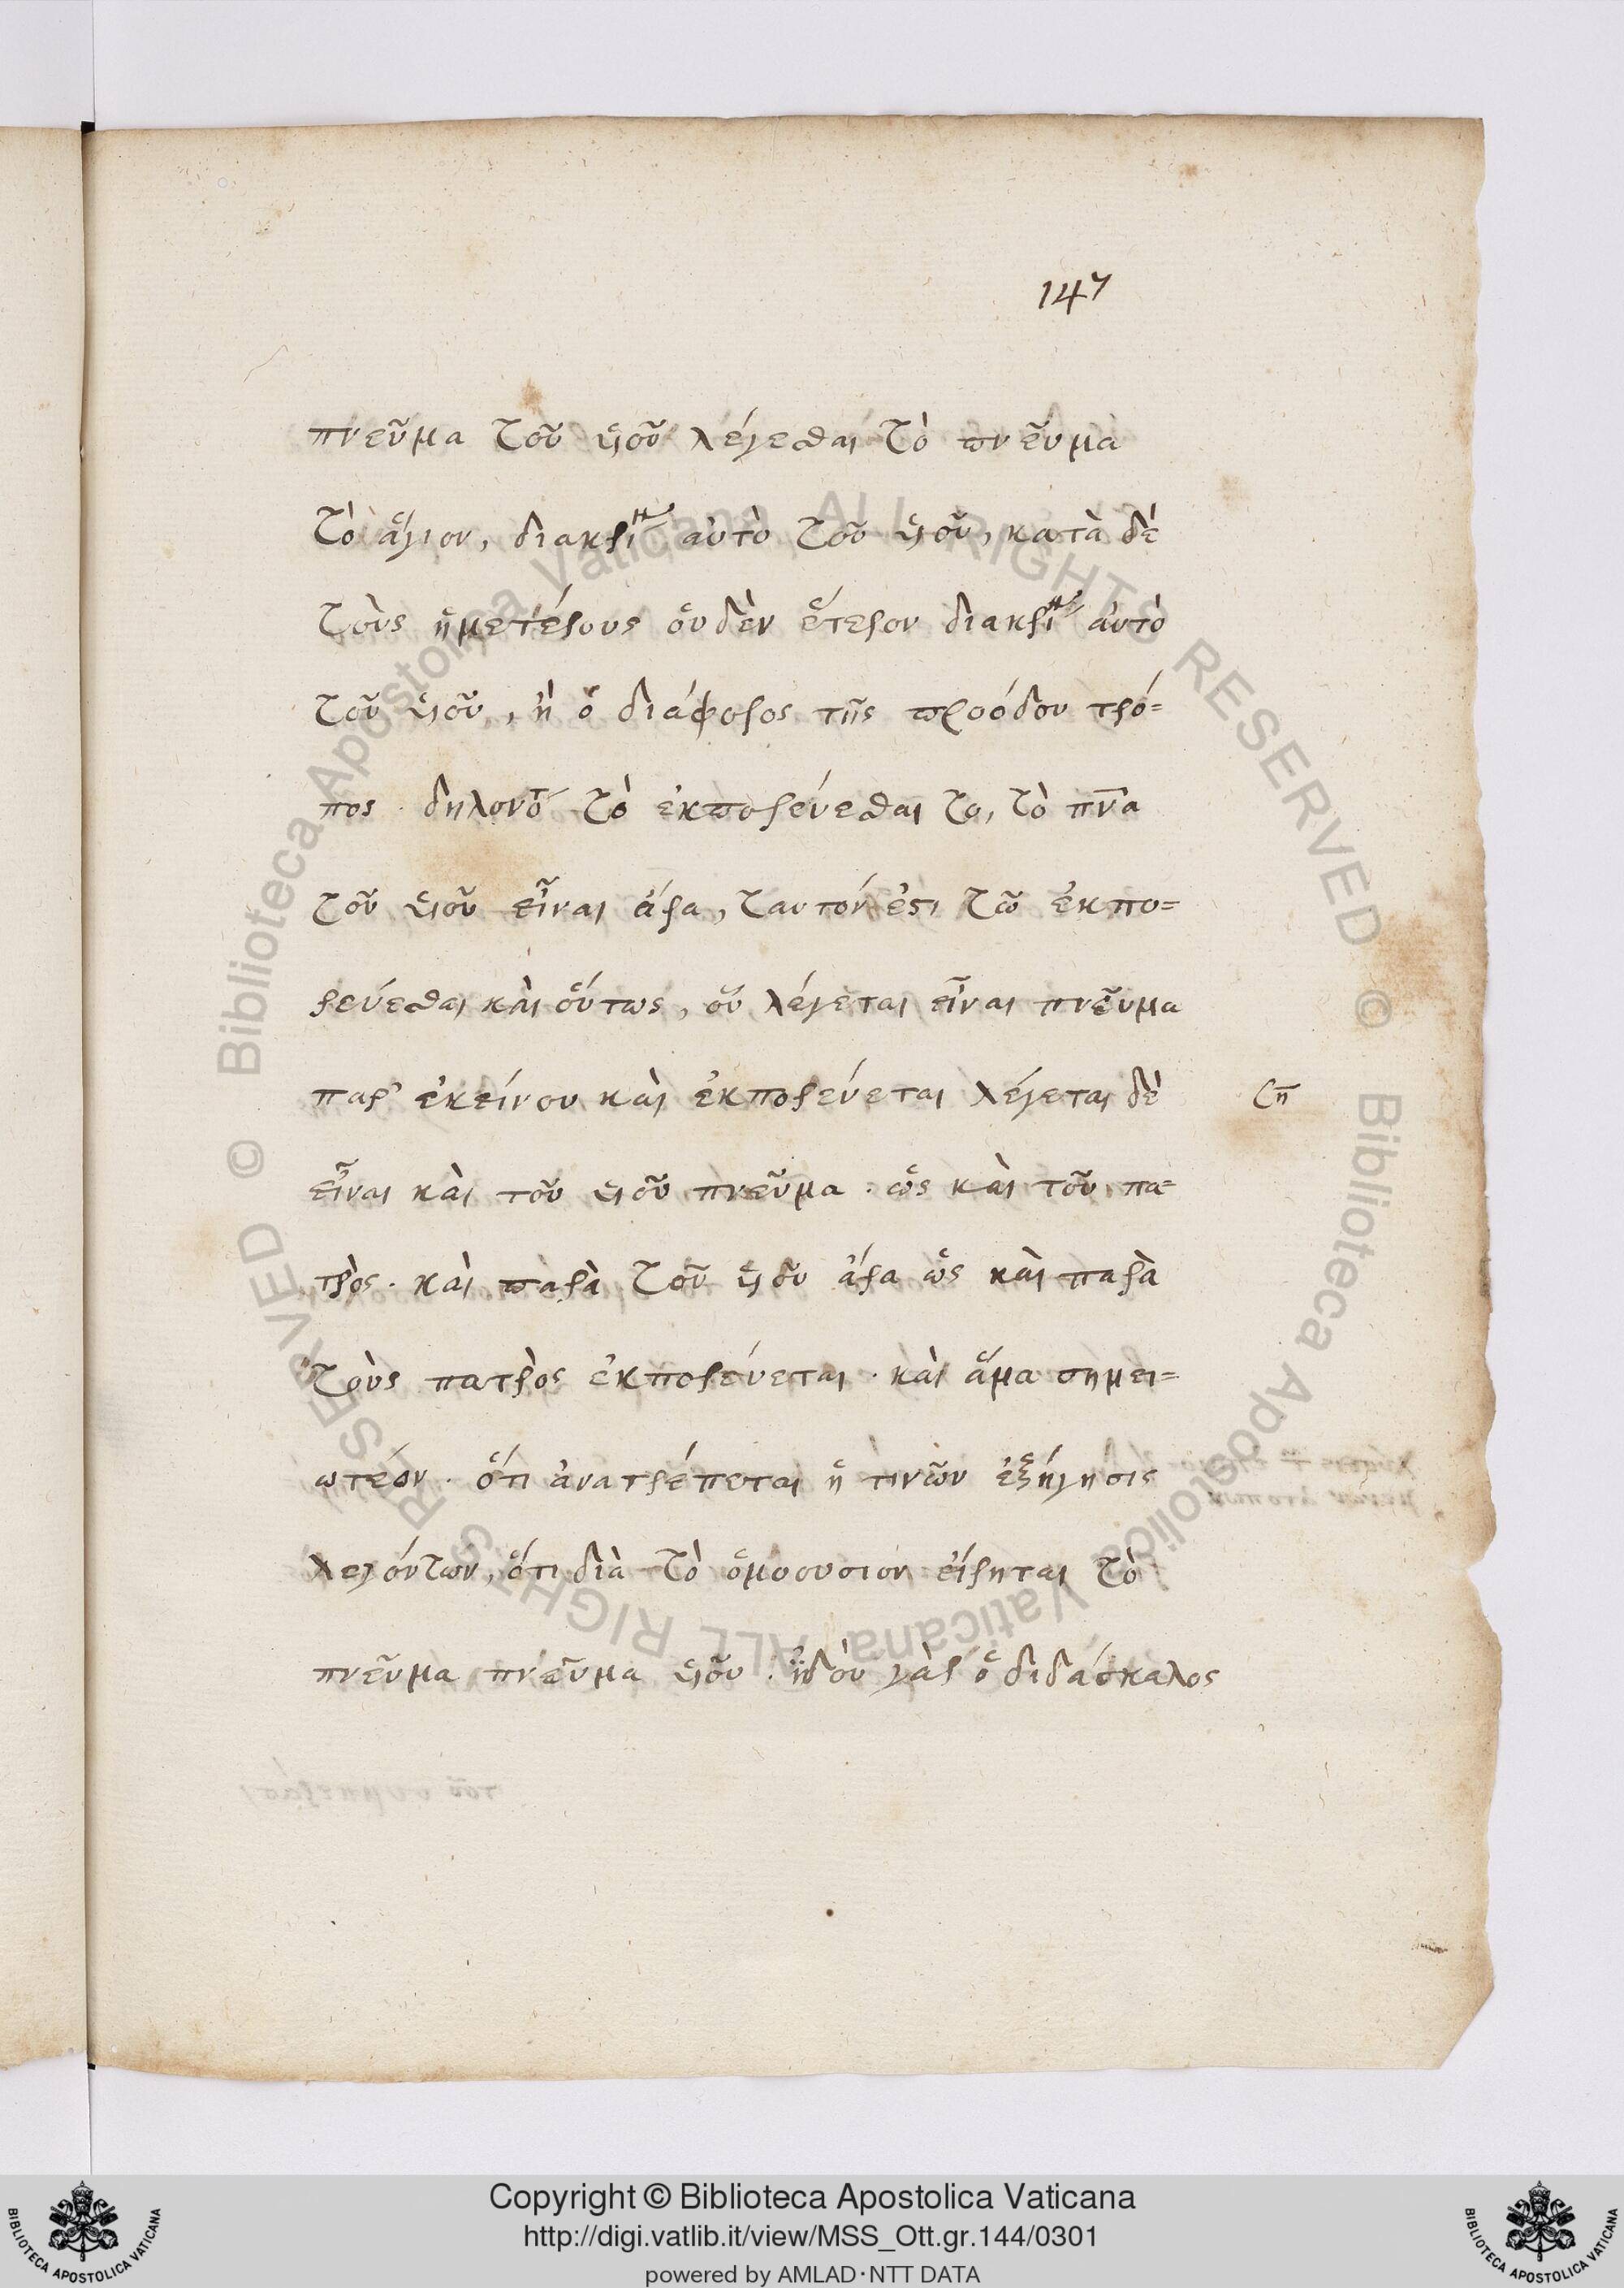 147
πνεῦμα τοῦ υἱοῦ λέγεσθαι τὸ πνεῦμα
τὸ ἅγιον, διακρί αὐτὸ τοῦ υἱοῦ, κατὰ δὲ
τοὺς ἡμετέρους οὐδὲν ἕτερον διακρί αὐτὸ
τοῦ υἱοῦ, ἢ ὁ διάφορος τῆς προόδου τρό=
πος · δηλονότ τὸ ἐκπορεύεσθαι το, τὸ πν̅α
τοῦ υἱοῦ εἶναι ἄρα, ταυτόν ἐστι τῶ ἐκπο=
ρεύεσθαι καὶ οὕτως, οὗ λέγεται εἶναι πνεῦμα
παρ' ἐκείνου καὶ ἐκπορεύεται λέγεται δὲ
εἶναι καὶ τοῦ υἱοῦ πνεῦμα · ὡς καὶ τοῦ πα=
τρὸς · καὶ παρὰ τοῦ υἱοῦ ἄρα ὡς καὶ παρὰ
τοὺς πατρὸς ἐκπορεύεται · καὶ ἅμα σημει=
ωτέον · ὅτι ἀνατρέπεται ἡ τινῶν ἐξήγησις
λεγόντων, ὅτι διὰ τὸ ὁμοουσιον εἴρηται τὸ
πνεῦμα πνεῦμα υἱοῦ · ἰδοὺ γὰρ ὁ διδάσκαλος
Copyright © Biblioteca Apostolica Vaticana
http://digi.vatlib.it/view/MSS_Ott.gr.144/0301
powered by AMLAD·NTT DATA
BIBLIOTECA APOSTOLICA VATICANA
BIBLIOTECA APOSTOLICA VATICANA
© Biblioteca Apostolica Vaticana ALL RIGHTS RESERVED
© Biblioteca Apostolica Vaticana ALL RIGHTS RESERVED